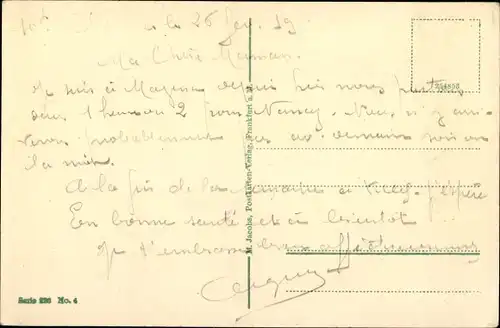 le 26 fev. 19
Ma Chère Maman.
Je suis à Mayence depuis hier nous partons
dans 1 heure ou 2 pour Nancy. Nous n'y arri-
verons probablement pas av. demain soir ou
la nuit.
A la fin de la semaine à j'espère
En bonne santé et à bientôt
Je t'embrasse bien affectueusement
M. Jacobs, Postkarten-Verlag, Frankfurt a. M.
Serie 236 No. 4